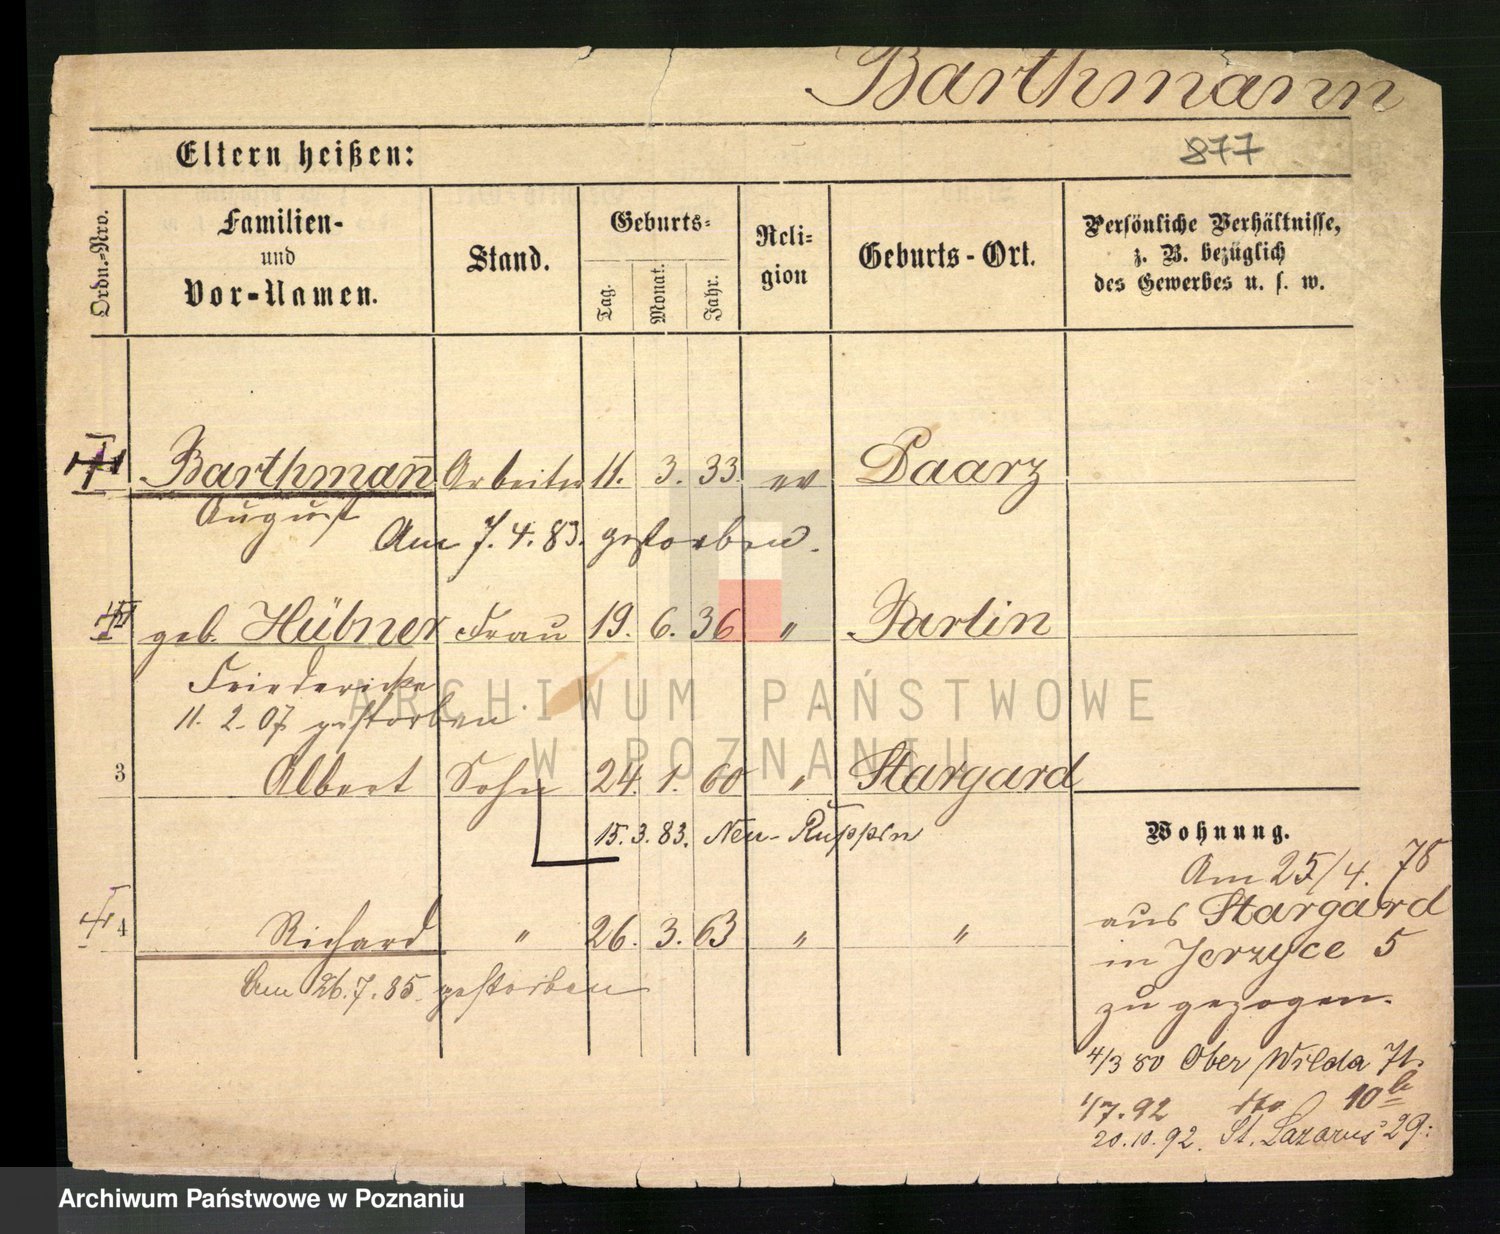 Barthmann
Eltern heißen:
877
Ordn.-Nro.
Familien-
und
Vor-Namen.
Stand.
Geburts-
Tag.
Monat.
Jahr.
Reli-
gion
Geburts-Ort.
Persönliche Verhältnisse,
z. B. bezüglich
des Gewerbes u. s. w.
Barthmann Arbeiter 11. 3. 33. ev Daarz
August
Am 7. 4. 83. gestorben.
geb. Hübner Frau 19. 6. 36 " Parlin
Friedericke
11. 2. 07 gestorben.
3 Albert Sohn 24. 1. 60 " Stargard
15. 3. 83. Neu-Ruppin
4 Richard " 26. 3. 63 " "
Am 26. 7. 85. gestorben
Wohnung.
Am 25/4. 78
aus Stargard
in Jerzyce 5
zu gezogen.
4/3 80 Ober Wilda 71.
1/7. 92 dto 10b
20. 10. 92. St. Lazarus 29.
ARCHIWUM PAŃSTWOWE
W POZNANIU
Archiwum Państwowe w Poznaniu